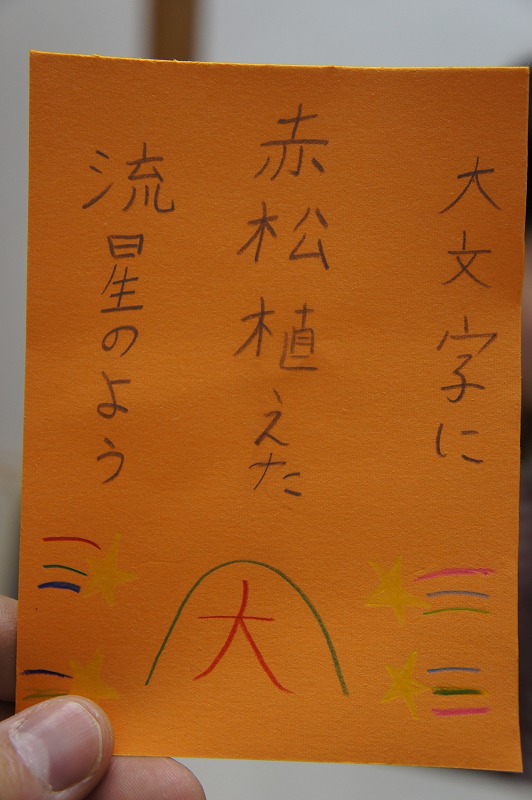 大文字に
赤松植えた
流星のよう
大